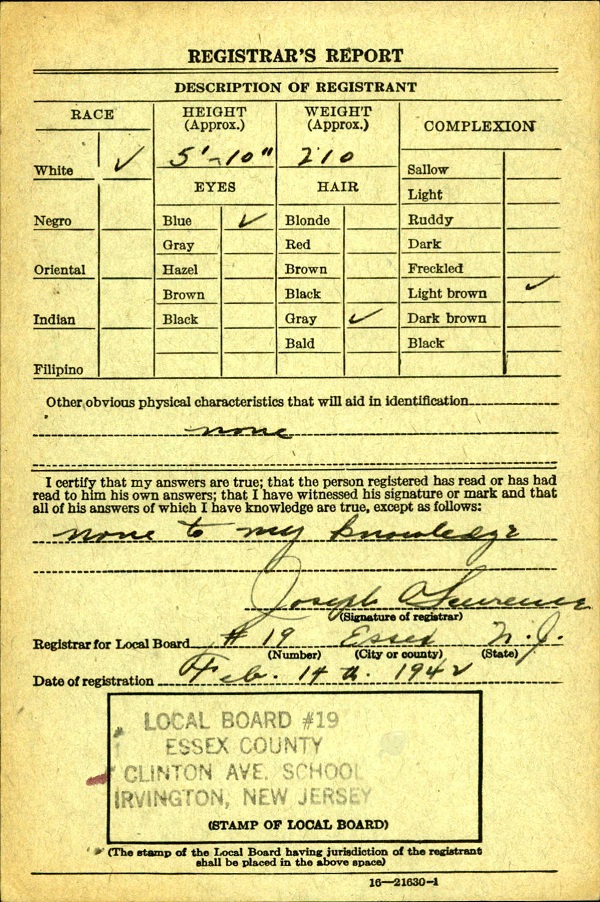 REGISTRAR'S REPORT
DESCRIPTION OF REGISTRANT
RACE
HEIGHT
(Approx.)
WEIGHT
(Approx.)
COMPLEXION
White ✓
5'-10"
210
Sallow
EYES
HAIR
Light
Negro
Blue ✓
Blonde
Ruddy
Gray
Red
Dark
Oriental
Hazel
Brown
Freckled
Brown
Black
Light brown ✓
Indian
Black
Gray ✓
Dark brown
Bald
Black
Filipino
Other obvious physical characteristics that will aid in identification
none
I certify that my answers are true; that the person registered has read or has had
read to him his own answers; that I have witnessed his signature or mark and that
all of his answers of which I have knowledge are true, except as follows:
none to my knowledge
Joseph
(Signature of registrar)
Registrar for Local Board # 19 Essex N.J.
(Number) (City or county) (State)
Date of registration Feb. 1942
LOCAL BOARD #19
ESSEX COUNTY
CLINTON AVE. SCHOOL
IRVINGTON, NEW JERSEY
(STAMP OF LOCAL BOARD)
(The stamp of the Local Board having jurisdiction of the registrant
shall be placed in the above space)
16—21630-1